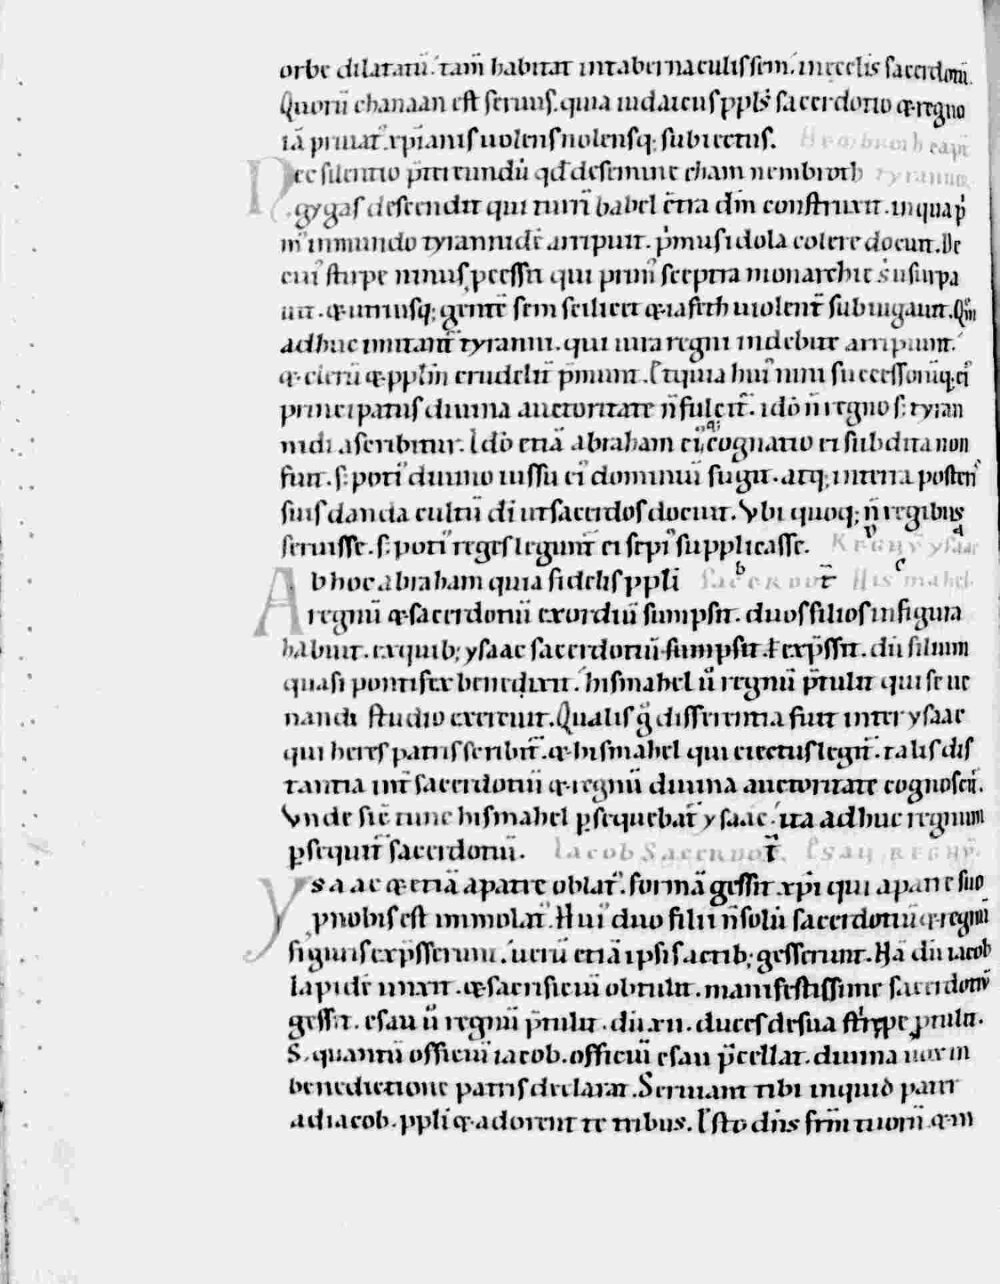 orbe dilatatū. tam̄ habitat intabernaculis sem. inęcclīs sacerdotū.
Quorū chanaan est seruus. quia iudaicus ppl's sacerdotio & regno
iā priuat' xp̄ianis uolens nolensq; subiectus. Nembroth capit
Nec silentio p̄tereundū qđ desemine cham nembroth tyrannię
gygas descendit qui turrī babel c̄tra dm̄ construxit. inqua p'
m' inmundo tyrannidē arripuit. p'mus idola colere docuit. De
cui' stirpe ninus pcessit qui prim' sceptra monarchie s' usurpa
uit. & utrūsq; gentē sem scilicet & iafeth uiolent' subiugauit. Qm̄
adhuc imitant' tyranni. qui iura regni indebite arripiunt.
& clerū & pplīm crudelit' p̄munt. Et quia hui' nini successorūq; ei'
principatus diuina auctoritate n̄ fulcit'. idō n̄ regno s; tyran
nidi ascribitur. Idō etiā abraham ei' cognatio ei subdita non
fuit. s; poti' diuino iussu ei' dominiū fugit. atq; interra posteri'
suis danda cultū dī ut sacerdos docuit. Vbi quoq; n̄ regibus
seruisse. s; poti' reges legunt' ei sepi' supplicasse. REGNV̄ ysaac
Ab hoc abraham quia fidelis ppli sacerdot' Hismahel
regnū & sacerdotiū exordiū sumpsit. duos filios infigura
habuit. exquib; ysaac sacerdotiū sumpsit t exp̄ssit. dū filium
quasi pontifex benedixit. hismahel ū regnū p̄tulit qui se ue
nandi studio exercuit. Qualis g' differentia fuit inter ysaac
qui heres patris scribit'. & hismahel qui eiectus legit'. talis dis
tantia int' sacerdotiū & regnū diuina auctoritate cognoscit'.
Vnde sic' tunc hismahel psequebat' ysaac. ita adhuc regnum
psequit' sacerdotiū. Iacob SACERDOT'. ESAU REGNV̄.
Ysaac & etiā apatre oblat'. formā gessit xp̄i qui apatre suo
pnobis est immolat'. Hui' duo filii n̄ solū sacerdotiū & regnū
figuris exp̄sserunt. uerū etiā ipsis actib; gesserunt. Nā dū iacob
lapidē unxit. & sacrificiū obtulit. manifestissime sacerdotiū
gessit. esau ū regnū p̄tulit. dū xii. duces desua stirpe ptulit.
S; quantū officiū iacob. officiū esau p̄cellat. diuina uox in
benedictione patris declarat. Seruiant tibi inquid pater
ad iacob. ppli & adorent te tribus. Esto dn̄s frm̄ tuorū. & in